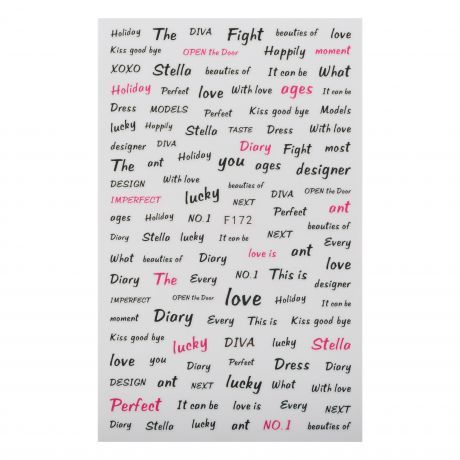 Holiday The DIVA Fight beauties of love
Kiss good bye OPEN the Door Happily moment
XOXO Stella beauties of It can be What
Holiday Perfect love With love ages It can be
Dress MODELS Perfect Kiss good bye Models
lucky Happily Stella TASTE Dress With love
designer DIVA Diary Fight most
The ant Holiday you ages designer
DESIGN With love beauties of DIVA OPEN the Door
IMPERFECT lucky NEXT Perfect ant
ages Holiday NO.1 F172 beauties of
Diary Stella lucky It can be NEXT Every
What beauties of Diary love is ant love
Diary The Every NO.1 This is designer
IMPERFECT OPEN the Door love Holiday It can be
moment Diary Every This is Kiss good bye
Kiss good bye lucky DIVA lucky Stella
love you Diary Perfect Dress Diary
DESIGN ant NEXT lucky What With love
Perfect It can be love is Every NEXT
Diary Stella lucky ant NO.1 beauties of